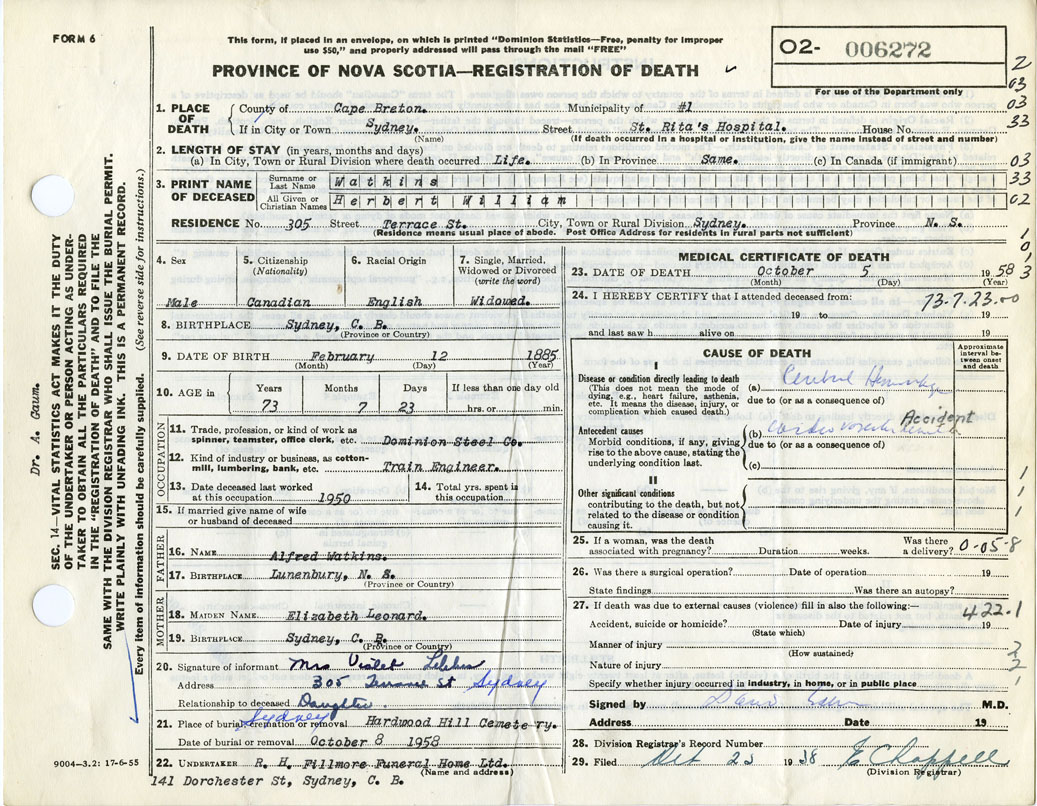 FORM 6
This form, if placed in an envelope, on which is printed "Dominion Statistics—Free, penalty for improper
use $50," and properly addressed will pass through the mail "FREE"
O2- 006272
For use of the Department only
PROVINCE OF NOVA SCOTIA—REGISTRATION OF DEATH
2
03
03
33
03
33
02
1
0
1
3
1. PLACE OF DEATH
County of Cape Breton. Municipality of #1
If in City or Town Sydney. Street St. Rita's Hospital. House No.
(Name) (If death occurred in a hospital or institution, give the name instead of street and number)
2. LENGTH OF STAY (in years, months and days)
(a) In City, Town or Rural Division where death occurred Life. (b) In Province Same. (c) In Canada (if immigrant)
3. PRINT NAME OF DECEASED
Surname or Last Name Watkins
All Given or Christian Names Herbert William
RESIDENCE No. 305 Street Terrace St. City, Town or Rural Division Sydney. Province N. S.
(Residence means usual place of abode. Post Office Address for residents in rural parts not sufficient)
4. Sex
Male
5. Citizenship (Nationality)
Canadian
6. Racial Origin
English
7. Single, Married, Widowed or Divorced (write the word)
Widowed.
8. BIRTHPLACE Sydney, C. B.
(Province or Country)
9. DATE OF BIRTH February 12 1885
(Month) (Day) (Year)
10. AGE in Years Months Days If less than one day old
73 7 23 hrs. or min.
OCCUPATION
11. Trade, profession, or kind of work as
spinner, teamster, office clerk, etc. Dominion Steel Co.
12. Kind of industry or business, as cotton-
mill, lumbering, bank, etc. Train Engineer.
13. Date deceased last worked
at this occupation 1950
14. Total yrs. spent in
this occupation
15. If married give name of wife
or husband of deceased
FATHER
16. NAME Alfred Watkins.
17. BIRTHPLACE Lunenbury, N. S.
(Province or Country)
MOTHER
18. MAIDEN NAME Elizabeth Leonard.
19. BIRTHPLACE Sydney, C. B.
(Province or Country)
20. Signature of informant Mrs Violet
Address 305 Terrace St Sydney
Relationship to deceased Daughter.
21. Place of burial, cremation or removal Sydney Hardwood Hill Cemetery.
Date of burial or removal October 8 1958
22. UNDERTAKER R. H. Fillmore Funeral Home Ltd.
(Name and address)
141 Dorchester St, Sydney, C. B.
9004-3.2: 17-6-55
MEDICAL CERTIFICATE OF DEATH
23. DATE OF DEATH October 5 1958
(Month) (Day)
24. I HEREBY CERTIFY that I attended deceased from:
73-7-23-00
19 to 19
and last saw h alive on 19
CAUSE OF DEATH
Approximate interval between onset and death
I
Disease or condition directly leading to death
(This does not mean the mode of
dying, e.g., heart failure, asthenia,
etc. It means the disease, injury, or
complication which caused death.)
(a) Cerebral Hemorrhage
due to (or as a consequence of)
Antecedent causes
Morbid conditions, if any, giving
rise to the above cause, stating the
underlying condition last.
(b) Cardio vascular Accident
due to (or as a consequence of)
(c)
II
Other significant conditions
contributing to the death, but not
related to the disease or condition
causing it.
1
1
1
25. If a woman, was the death
associated with pregnancy? Duration weeks. Was there
a delivery? 0-05-8
26. Was there a surgical operation? Date of operation 19
State findings Was there an autopsy?
27. If death was due to external causes (violence) fill in also the following:—
422.1
Accident, suicide or homicide? Date of injury 19
(State which)
Manner of injury
2
(How sustained)
Nature of injury
2
Specify whether injury occurred in industry, in home, or in public place
1
Signed by M.D.
Address Date 19
28. Division Registrar's Record Number
29. Filed Oct 23 1958 E Chappell
(Division Registrar)
SEC. 14—VITAL STATISTICS ACT MAKES IT THE DUTY
OF THE UNDERTAKER OR PERSON ACTING AS UNDER-
TAKER TO OBTAIN ALL THE PARTICULARS REQUIRED
IN THE "REGISTRATION OF DEATH" AND TO FILE THE
SAME WITH THE DIVISION REGISTRAR WHO SHALL ISSUE THE BURIAL PERMIT.
WRITE PLAINLY WITH UNFADING INK. THIS IS A PERMANENT RECORD.
Every item of information should be carefully supplied. (See reverse side for instructions.)
Dr. A. Gaum.